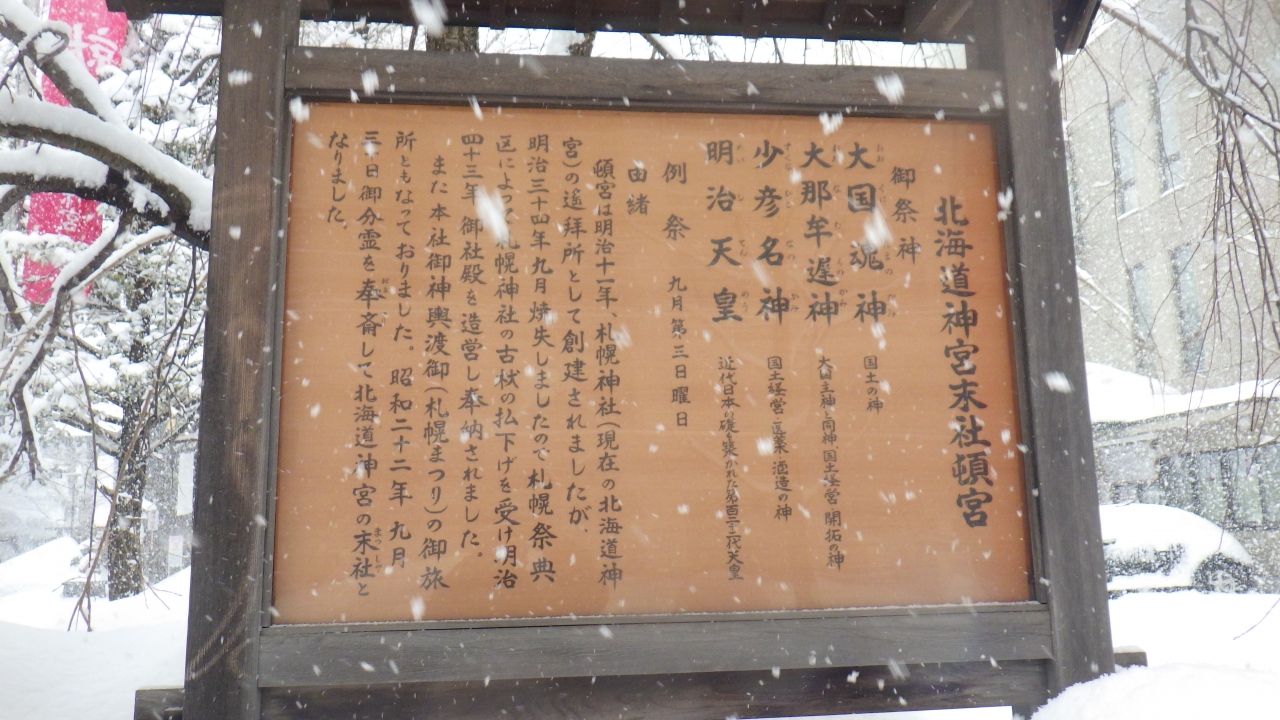 北海道神宮末社頓宮
御祭神
大国魂神 国土の神
大那牟遅神 大国主神と同神国土経営・開拓の神
少彦名神 国土経営・医薬・酒造の神
明治天皇 近代日本の礎を築かれた第百二十二代天皇
例祭 九月第三日曜日
由緒
頓宮は明治十一年、札幌神社(現在の北海道神
宮)の遥拝所として創建されましたが、
明治三十四年九月焼失しましたので札幌祭典
区によって札幌神社の古材の払下げを受け明治
四十三年 御社殿を造営し奉納されました。
また本社御神輿渡御(札幌まつり)の御旅
所ともなっておりました。昭和二十二年 九月
三十日御分霊を奉斎して北海道神宮の末社と
なりました。